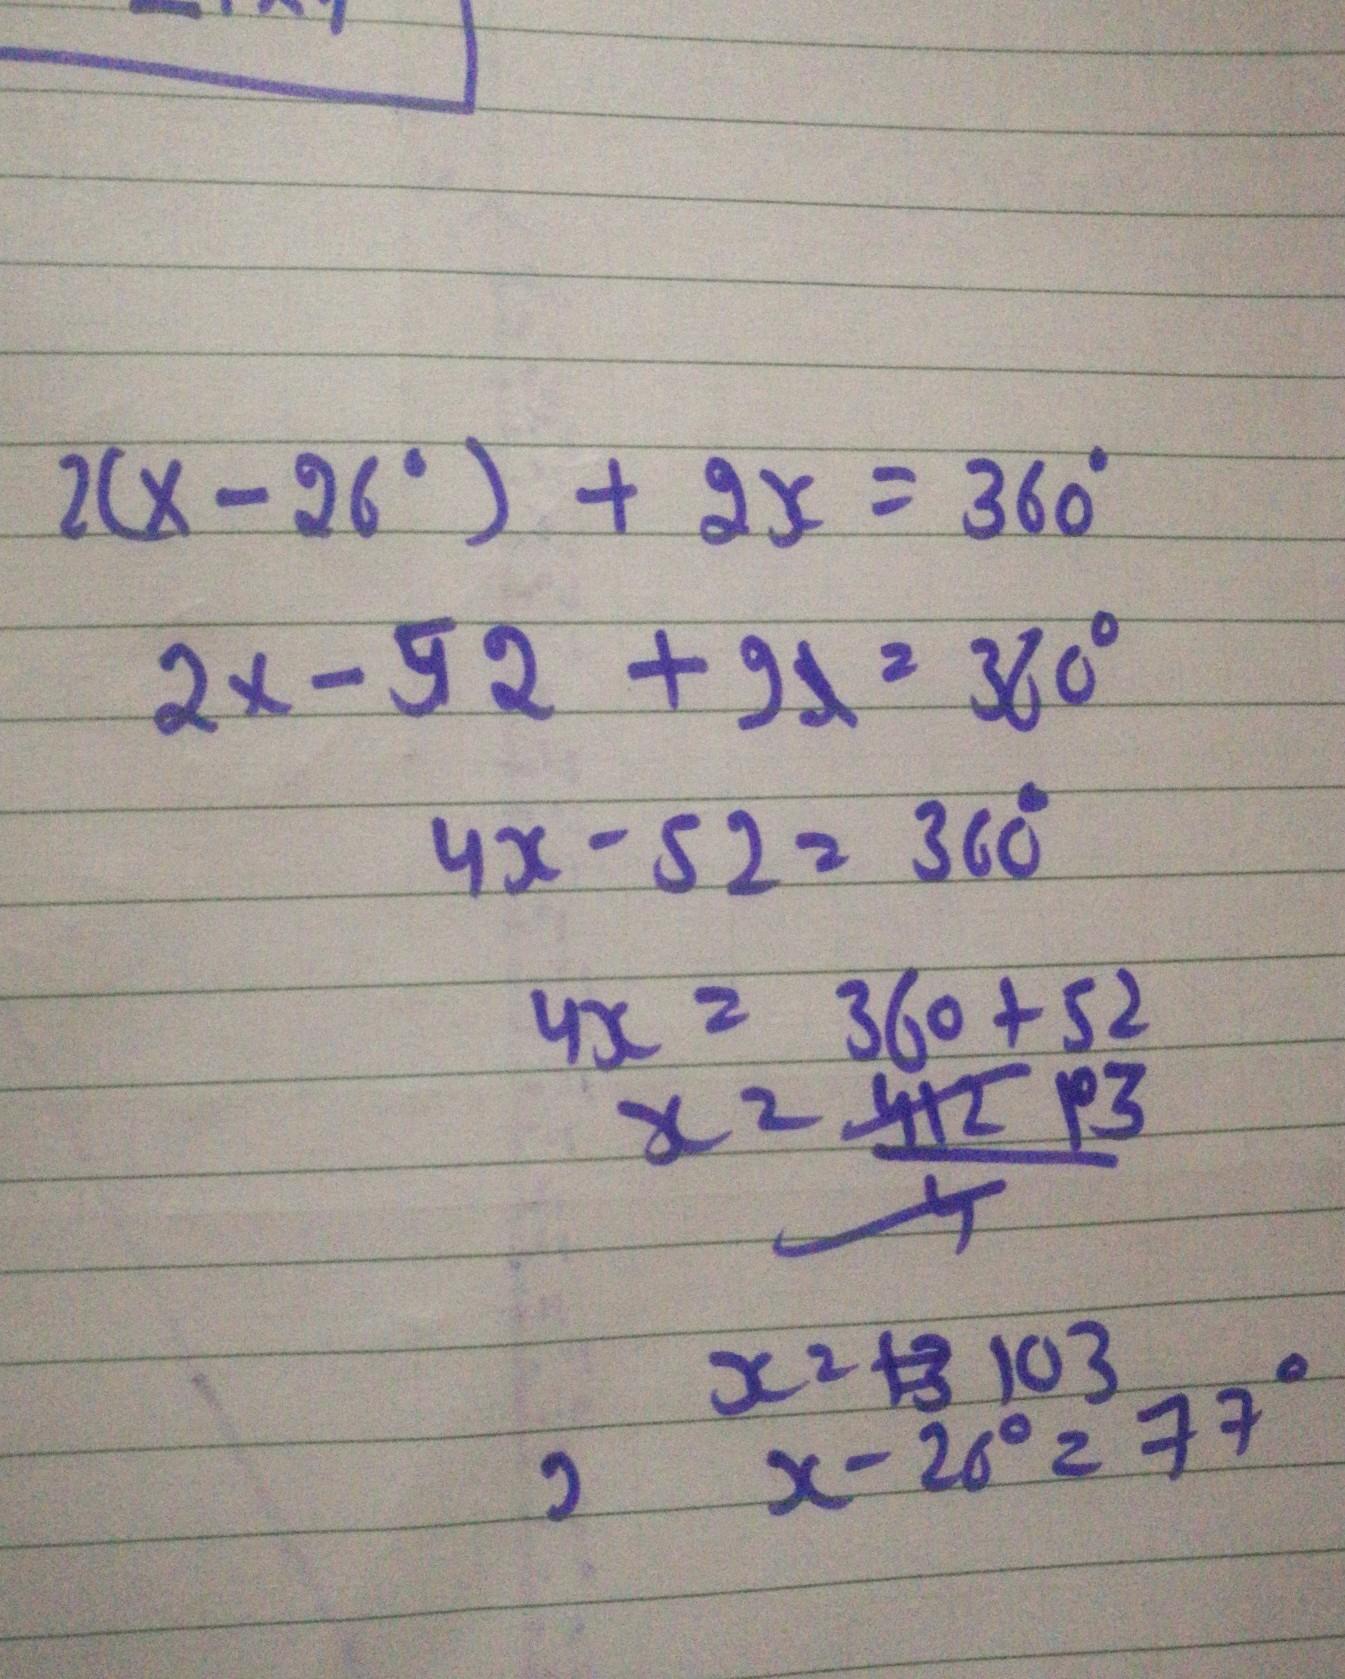 2(x - 26°) + 2x = 360°
2x - 52 + 2x = 360°
4x - 52 = 360°
4x = 360 + 52
x = 412 103
4
x = 103
x - 26° = 77°